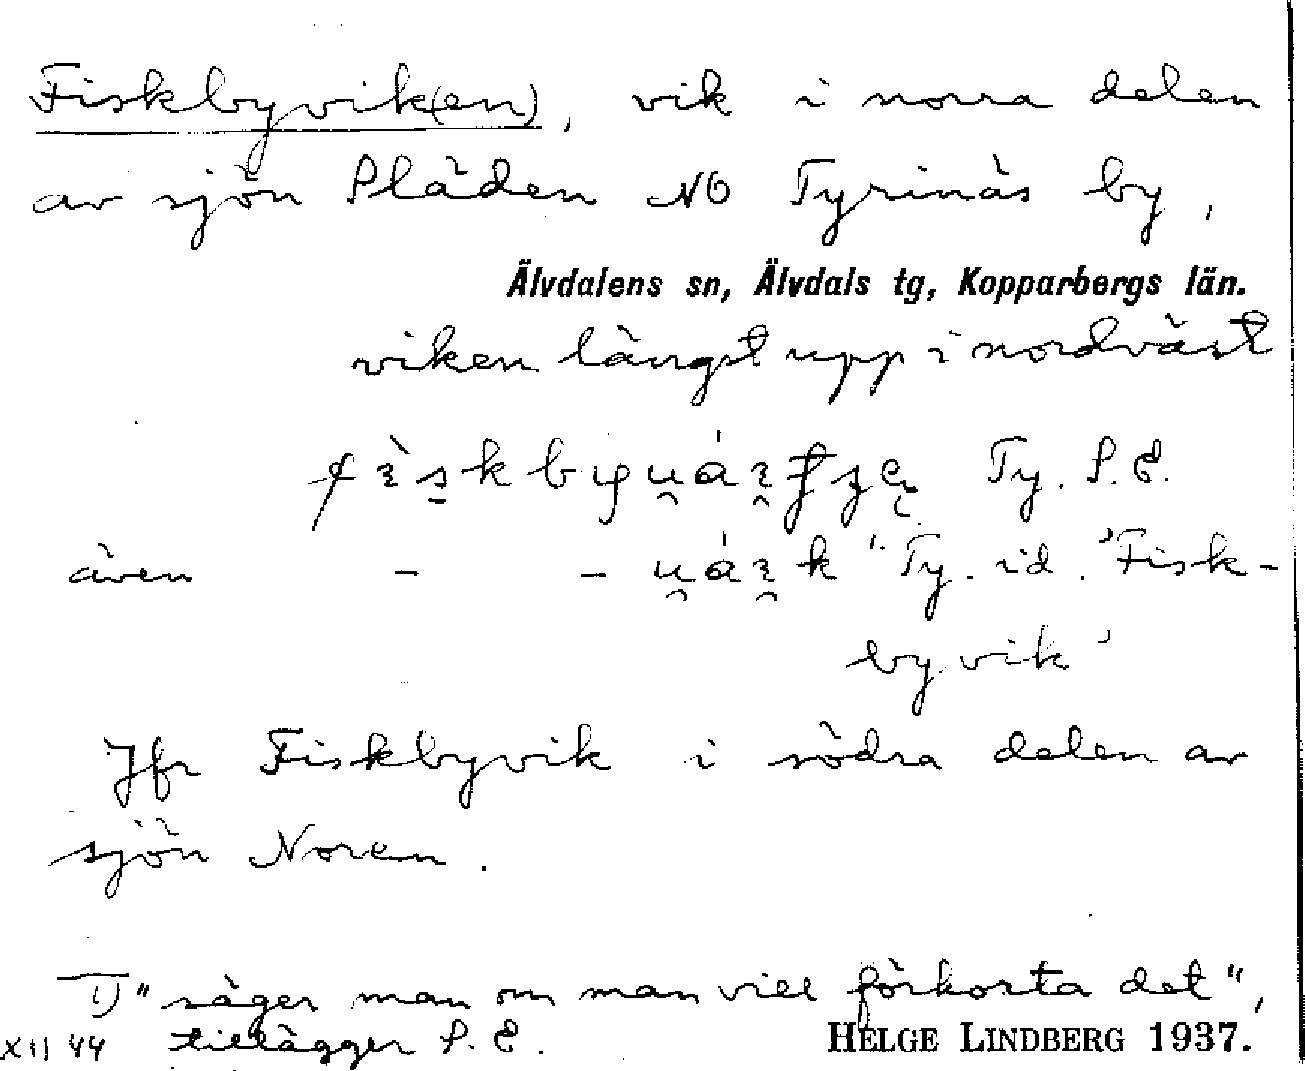 Fiskbyvik(en), vik i norra delen
av sjön Pläden NO Tyrinäs by,
Älvdalens sn, Älvdals tg, Kopparbergs län.
viken längst upp i nordväst
Ty. P.E.
även - - Ty. id. 'Fisk-
byvik'
Jfr Fiskbyvik i södra delen av
sjön Noren.
1) "säger man om man vill förkorta det",
XII 44 tillägger P.E. HELGE LINDBERG 1937.